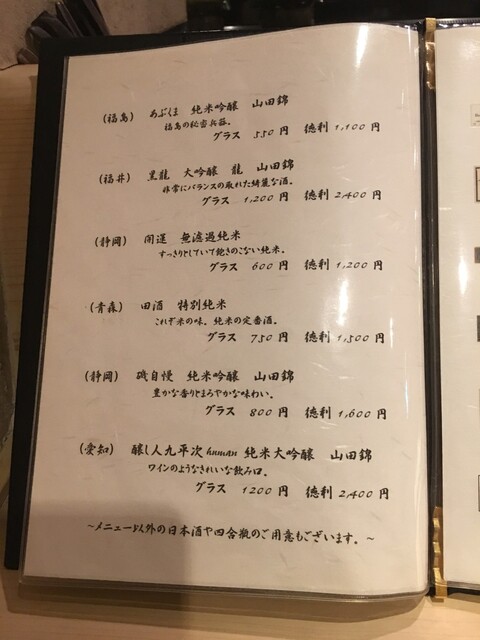 (福島) あぶくま 純米吟醸 山田錦
福島の秘密兵器。
グラス 550 円 徳利 1,100 円
(福井) 黒龍 大吟醸 龍 山田錦
非常にバランスの取れた綺麗な酒。
グラス 1,200 円 徳利 2,400 円
(静岡) 開運 無濾過純米
すっきりとしていて飽きのこない純米。
グラス 600 円 徳利 1,200 円
(青森) 田酒 特別純米
これぞ米の味。純米の定番酒。
グラス 750 円 徳利 1,500 円
(静岡) 磯自慢 純米吟醸 山田錦
豊かな香りとまろやかな味わい。
グラス 800 円 徳利 1,600 円
(愛知) 醸し人九平次 human 純米大吟醸 山田錦
ワインのようなきれいな飲み口。
グラス 1200 円 徳利 2,400 円
~メニュー以外の日本酒や四合瓶のご用意もございます。~